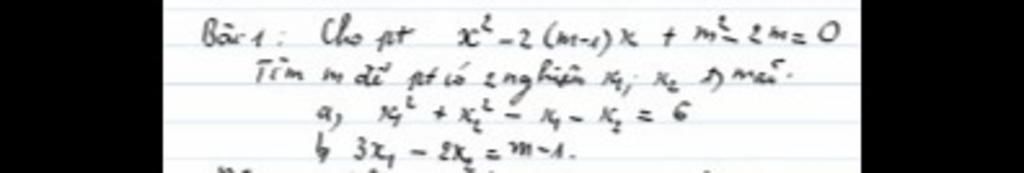 Bài 1: Cho pt x² - 2(m-1)x + m² - 2m = 0
Tìm m để pt có 2 nghiệm x₁; x₂ t/ mãn.
a, x₁² + x₂² - x₁ - x₂ = 6
b, 3x₁ - 2x₂ = m-1.